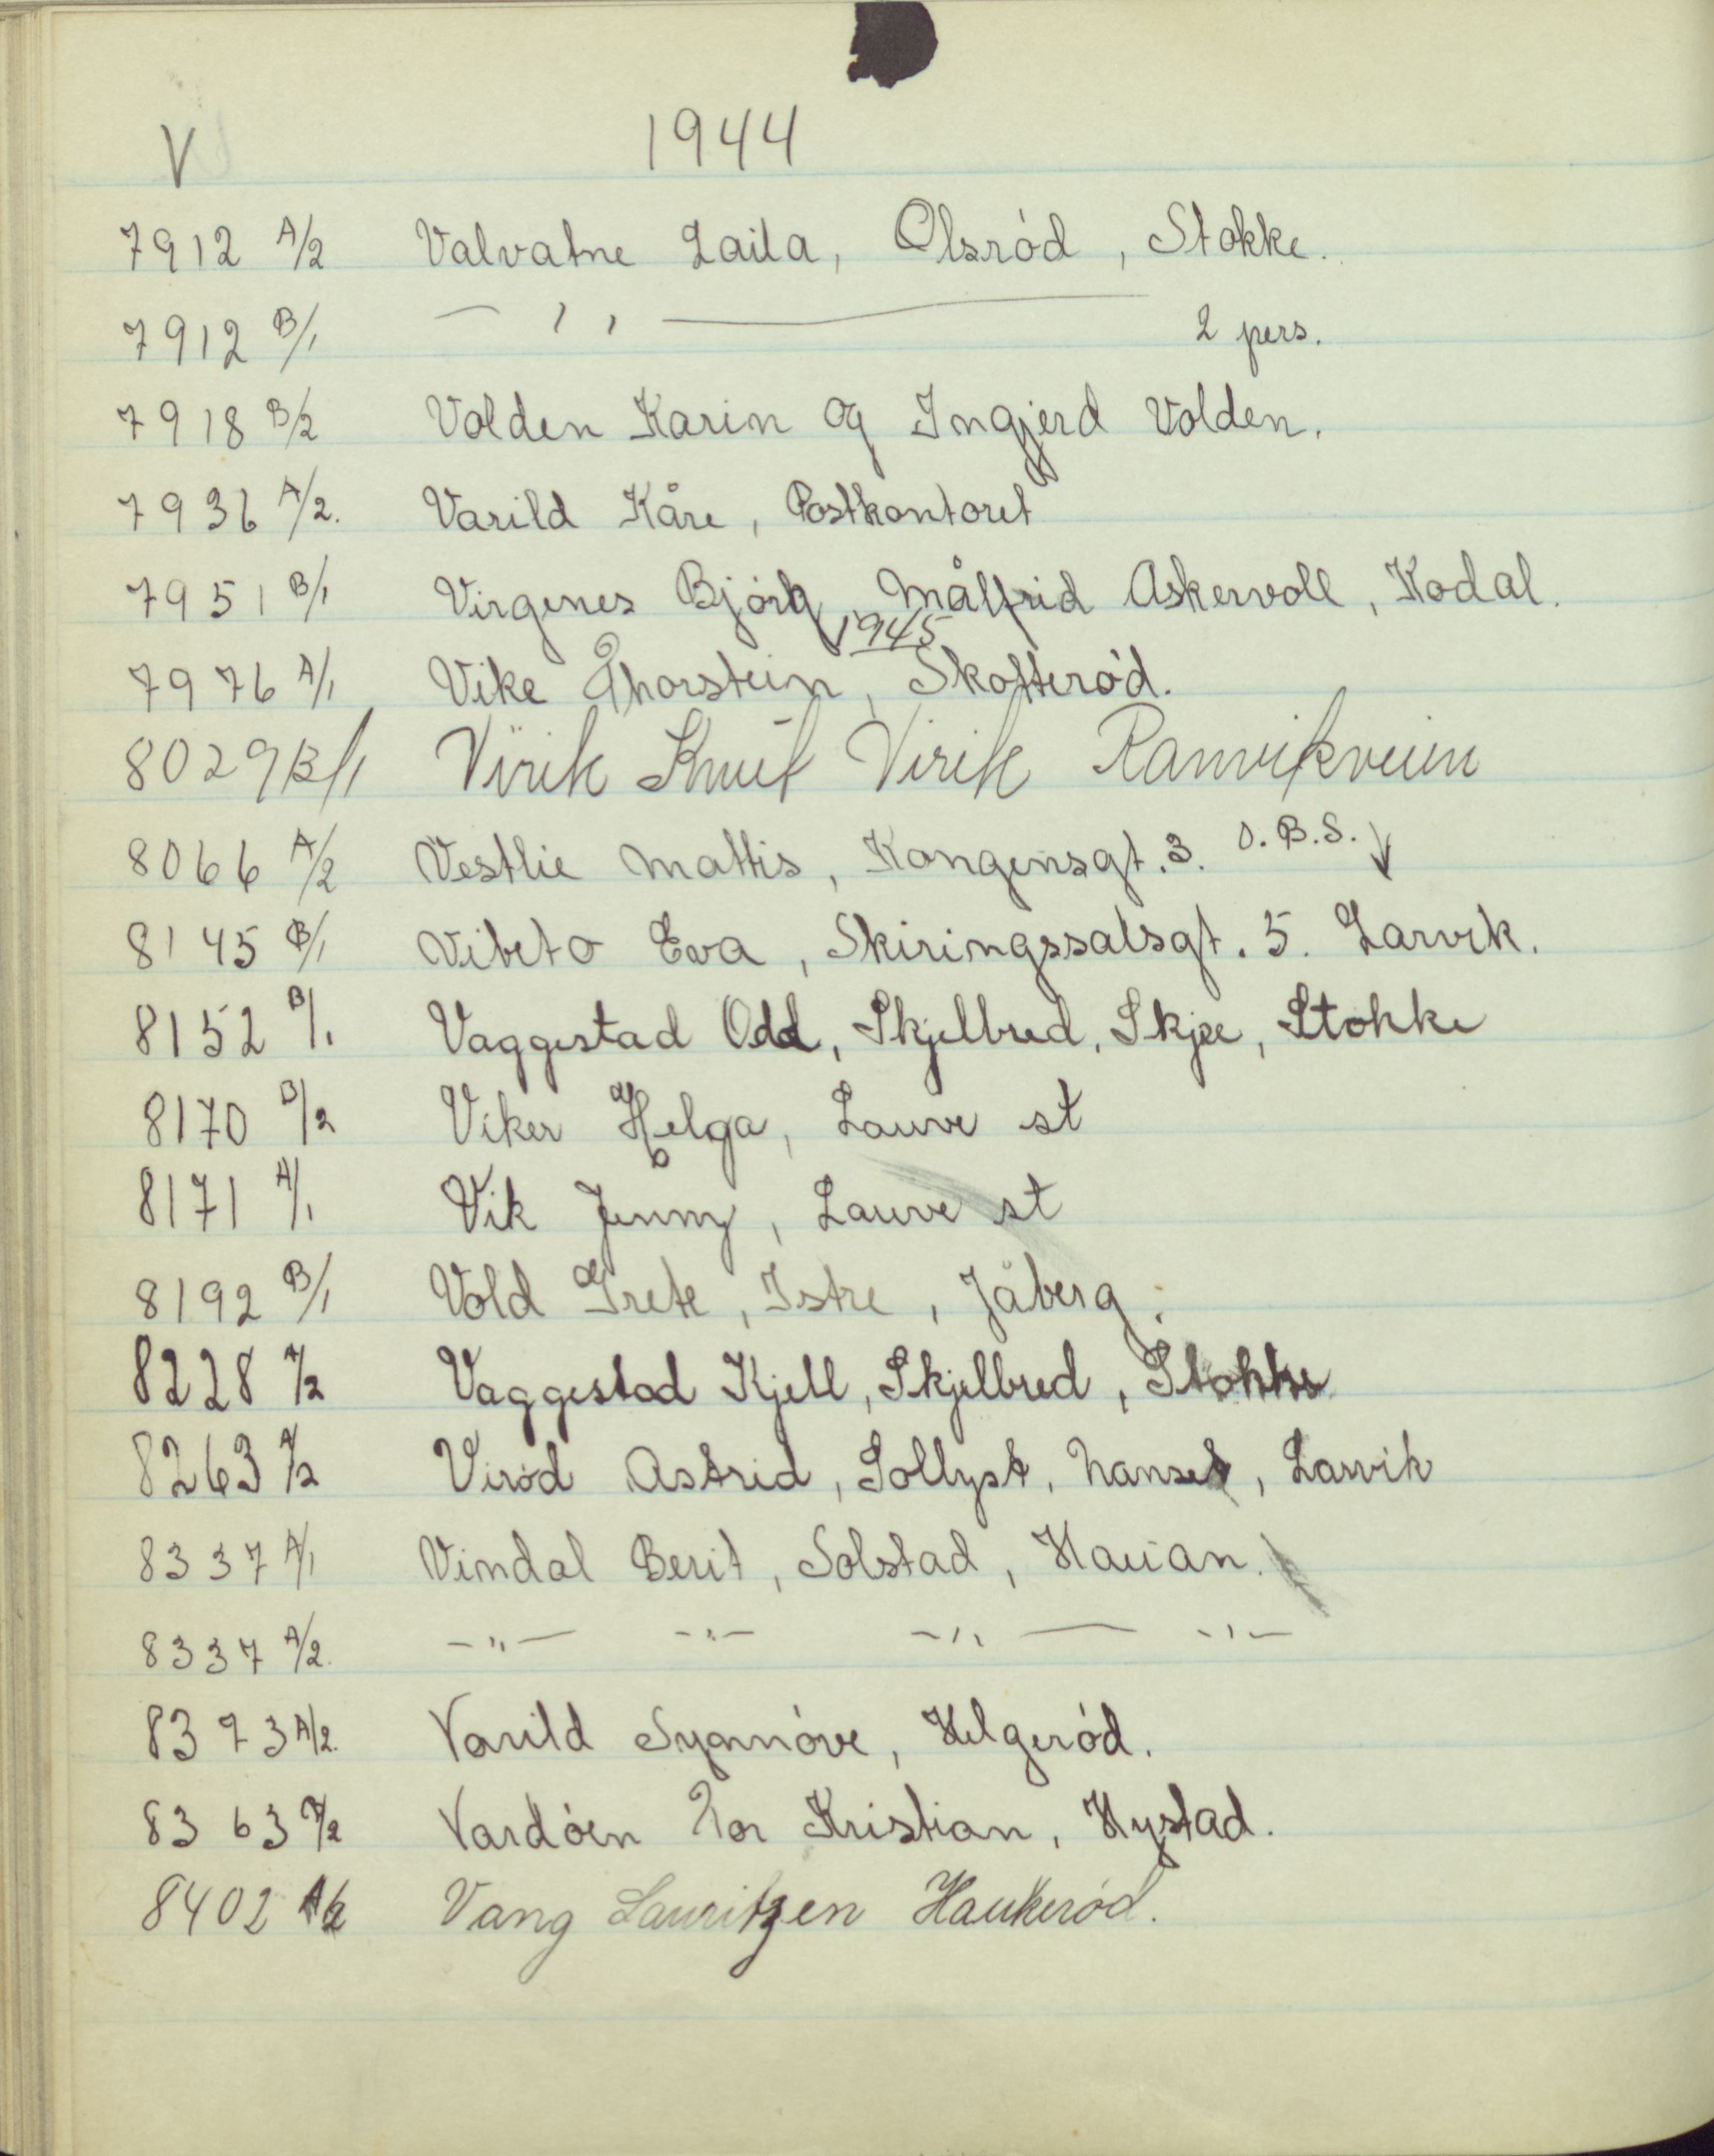 V 1944
7912 A/2 Valvatne Laila, Olsród, Stokke.
7912 B/1 — ,, — 2 pers.
7918 B/2 Volden Karin og Ingjerd Volden.
7936 A/2. Varild Kåre, Postkontoret
7951 B/1 Virgenes Bjórg, Målfrid Askervoll, Kodal.
1945
7976 A/1 Vike Thorstein, Skofteród.
8029 B/1 Virik Knut Virik Ranvikveien
8066 A/2 Vestlie Mattis, Kongensgt. 3. O.B.S.
8145 B/1 Vibeto Eva, Skiringssalsgt. 5. Larvik.
8152 B/1 Vaggestad Odd, Skjelbred, Skjee, Stokke
8170 B/2 Viker Helga, Lauve st
8171 A/1 Vik Jenny, Lauve st
8192 B/1 Vold Grete, Istre, Jåberg.
8228 A/2 Vaggestad Kjell, Skjelbred, Stokke
8263 A/2 Viród Astrid, Sollyst, Nanset, Larvik
8337 A/1 Vindal Berit, Solstad, Hauan.
8337 A/2. —,,— —,,— —,,— —,,—
8373 A/2. Varild Synnóve, Helgeród.
8363 A/2 Vardóen Tor Kristian, Hystad.
8402 A/2 Vang Lauritzen Haukeród.